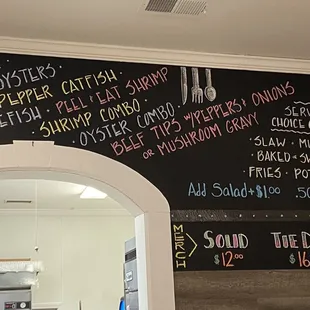 OYSTERS ·
PEPPER CATFISH ·
PEEL & EAT SHRIMP
SHRIMP COMBO ·
OYSTER COMBO ·
BEEF TIPS W/PEPPERS & ONIONS
OR MUSHROOM GRAVY
CHOICE
SLAW ·
BAKED
FRIES ·
Add Salad + $1.00
MERCH
SOLID
$12.00
TIE D
$16